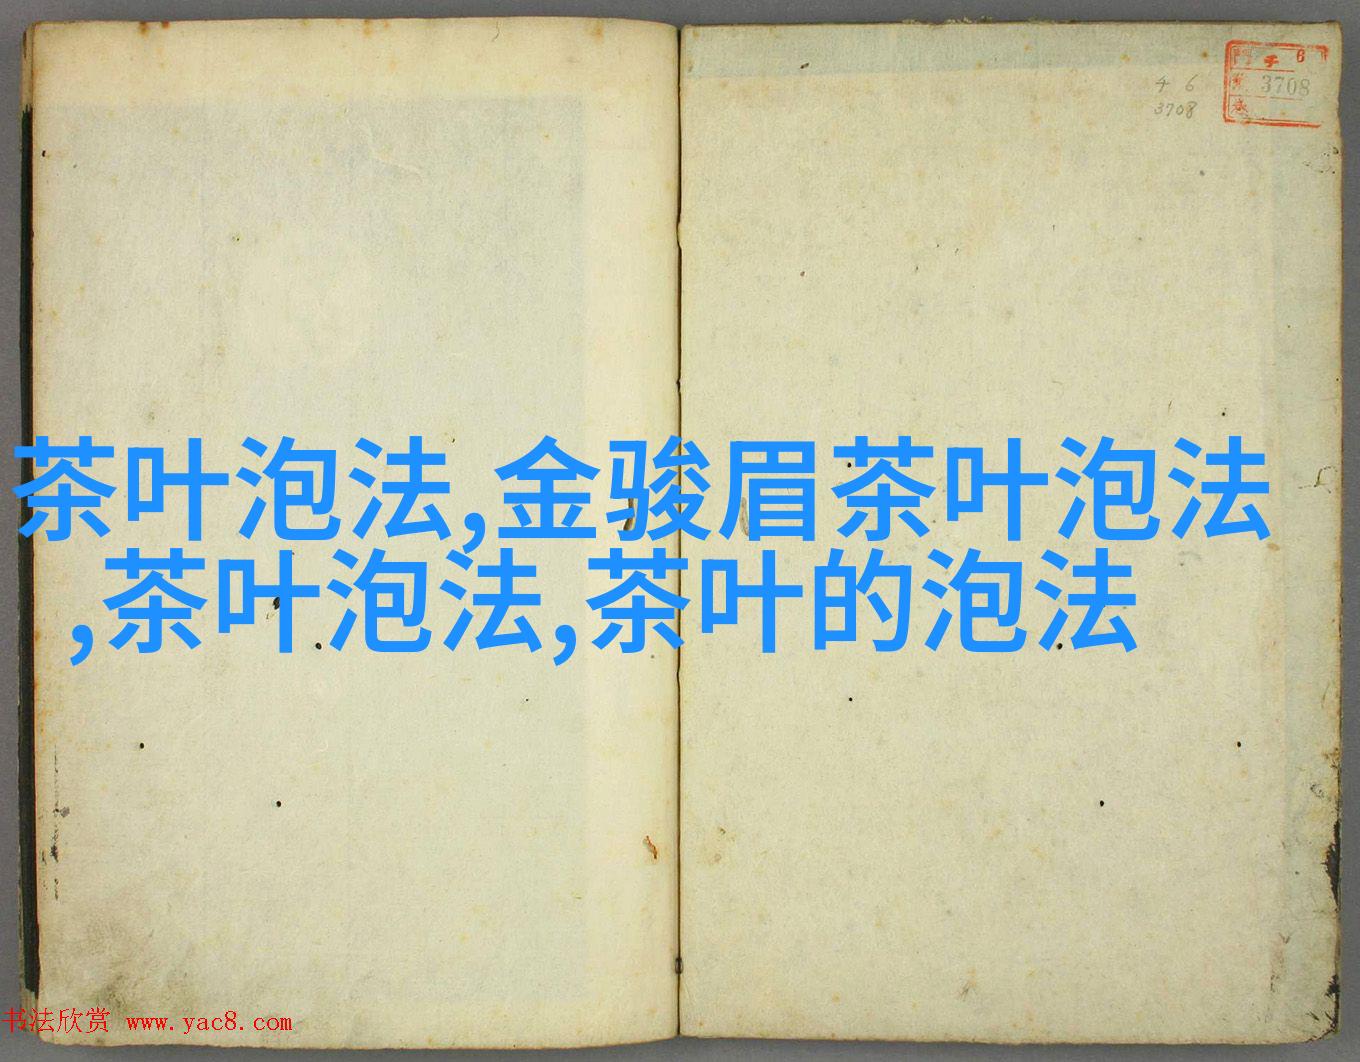 4 6
3708
6
3708
茶叶泡法,金骏眉茶叶泡法
,茶叶泡法,茶叶的泡法
书法欣赏 www.yac8.com